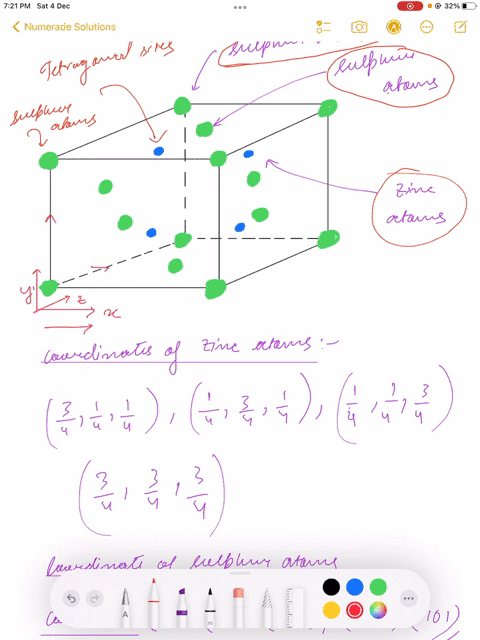 7:21 PM Sat 4 Dec
32%
Numerade Solutions
Tetragonal sites
sulphur
sulphur
atoms
sulphur
atoms
Zinc
atoms
y
z
x
Coordinates of Zinc atoms :-
(3/4, 1/4, 1/4), (1/4, 3/4, 1/4), (1/4, 1/4, 3/4)
(3/4, 3/4, 3/4)
Coordinate of sulphur atoms
101)
A